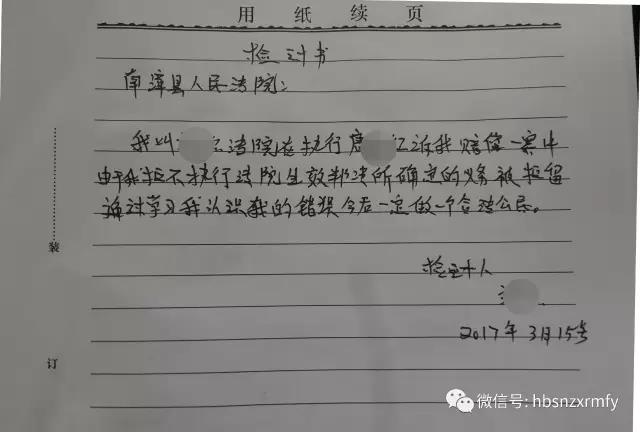 用纸续页
检讨书
南漳县人民法院:
我叫 法院在执行唐 诉我赔偿一案中
由于我拒不执行法院生效判决所确定的义务被拘留
通过学习我认识我的错误今后一定做一个合法公民。
检讨人
2017年3月15号
装
订
微信号: hbsnzxrmfy